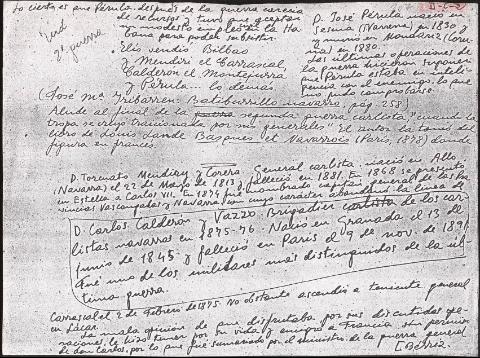 Lo cierto es que Pérula, después de la guerra carecía
de recursos y tuvo que aceptar
un modesto empleo en la Ha-
bana para poder subsistir.
2ª guerra
Elío vendió Bilbao
y Mendiri el Carrascal,
Calderón el Montejurra
y Pérula... lo demás
(José Mª Iribarren. Batiburrillo navarro, pág. 258)
D. José Pérula nació en
Sesma (Navarra) en 1830 y
murió en Mondáriz (Coru-
ña) en 1880.
Las últimas operaciones de
la guerra hicieron suponer
que Pérula estaba en inteli-
gencia con el enemigo, lo que
no pudo comprobarse.
Alude al final de la segunda guerra carlista "cuando la
tropa se vio traicionada por sus generales". El autor la tomó del
libro de Louis Lande Basques et Navarrais (París, 1878) donde
figura en francés.
D. Torcuato Mendiry y Corera. General carlista, nació en Allo
(Navarra) el 22 de Mayo de 1813 y falleció en 1881. En 1868 se presentó
en Estella a Carlos VII. En 1874 fue nombrado capitán general de las Pro-
vincias Vascongadas y Navarra, con cuyo carácter abandonó la línea de
D. Carlos Calderón y Vazzo. Brigadier carlista de los car-
listas navarros en 1875-76. Nació en Granada el 13 de
junio de 1845 y falleció en París el 9 de nov. de 1891
Fue uno de los militares más distinguidos de la úl-
tima guerra.
Carrascal el 2 de Febrero de 1875. No obstante ascendió a teniente general
en Lácar.
La mala opinión de que disfrutaba por sus discutidas ope-
raciones, le hizo temer por su vida y emigró a Francia sin permiso
de don Carlos, por lo que fue sumariado por el ministro de la guerra general
Bérriz.